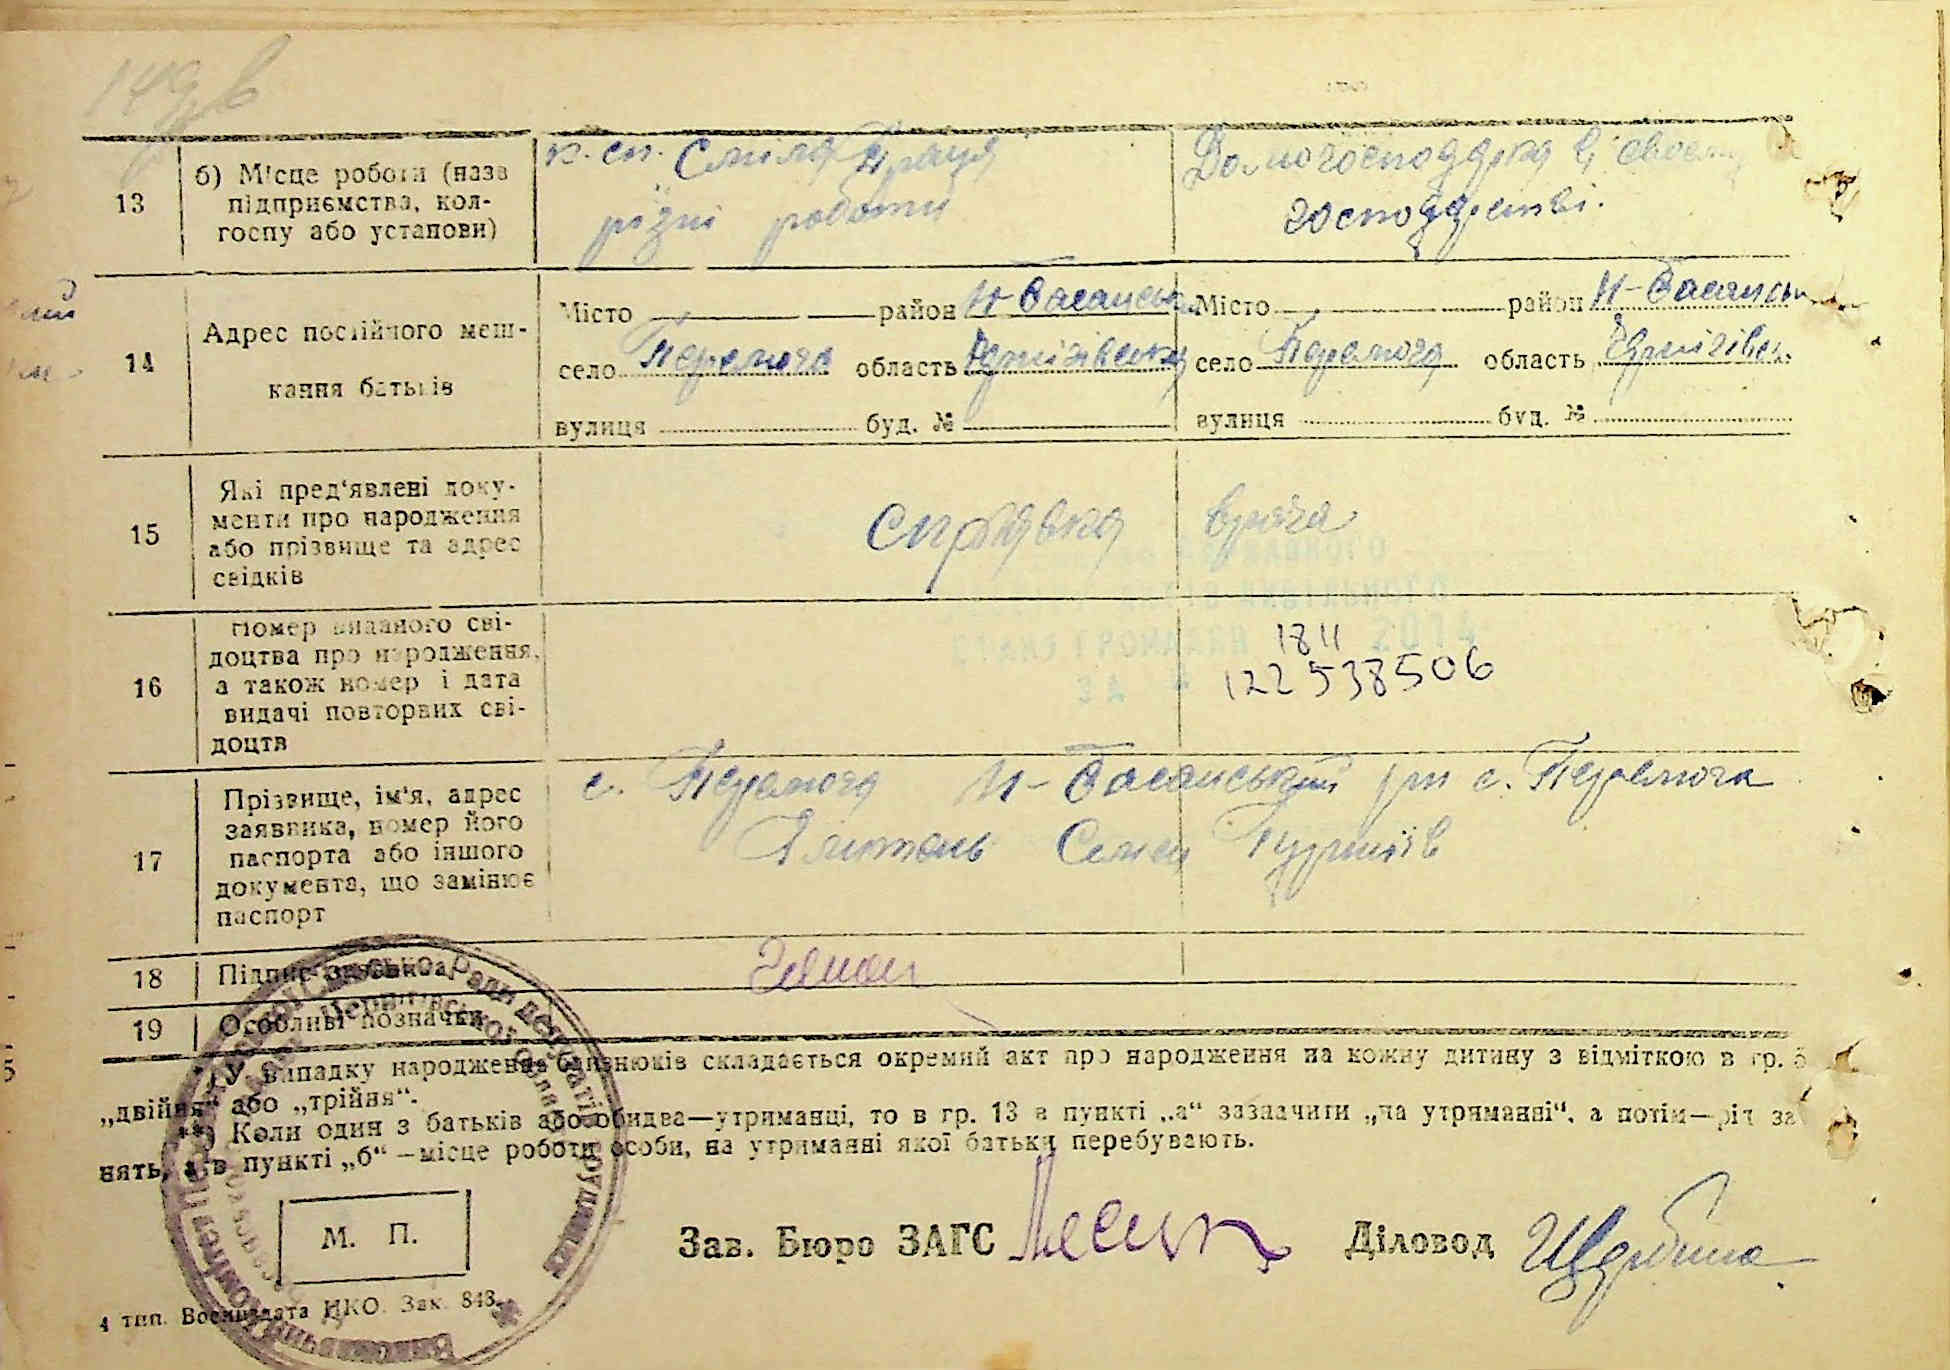 149 в
13
б) Місце роботи (назв
підприємства, кол-
госпу або установи)
к. сп. Сміла Праця
різні роботи
Домогосподарка в своєму
господарстві.
14
Адрес постійного меш-
кання батьків
Місто район Н-Басанськ
село Перемога область Чернігівськ
вулиця буд. №
Місто район Н-Басанськ
село Перемога область Чернігівськ.
вулиця буд. №
15
Які пред'явлені доку-
менти про народження
або прізвище та адрес
свідків
Справка врача
16
Номер виданого сві-
доцтва про народження,
а також номер і дата
видачі повторних сві-
доцтв
1811
122538506
2014
17
Прізвище, ім'я, адрес
заявника, номер його
паспорта або іншого
документа, що замінює
паспорт
с. Перемога Н-Басанський рн с. Перемога
18
Підпис заявника
19
Особливі позначки
*) У випадку народження близнюків складається окремий акт про народження на кожну дитину з відміткою в гр. 5
„двійня“ або „трійня“.
**) Коли один з батьків або обидва—утриманці, то в гр. 13 в пункті „а“ зазначити „на утриманні“, а потім—рід за
нять, а в пункті „б“ —місце роботи особи, на утриманні якої батьки перебувають.
М. П.
Зав. Бюро ЗАГС
Діловод Щербина
4 тип. Воениздата НКО. Зак. 843.